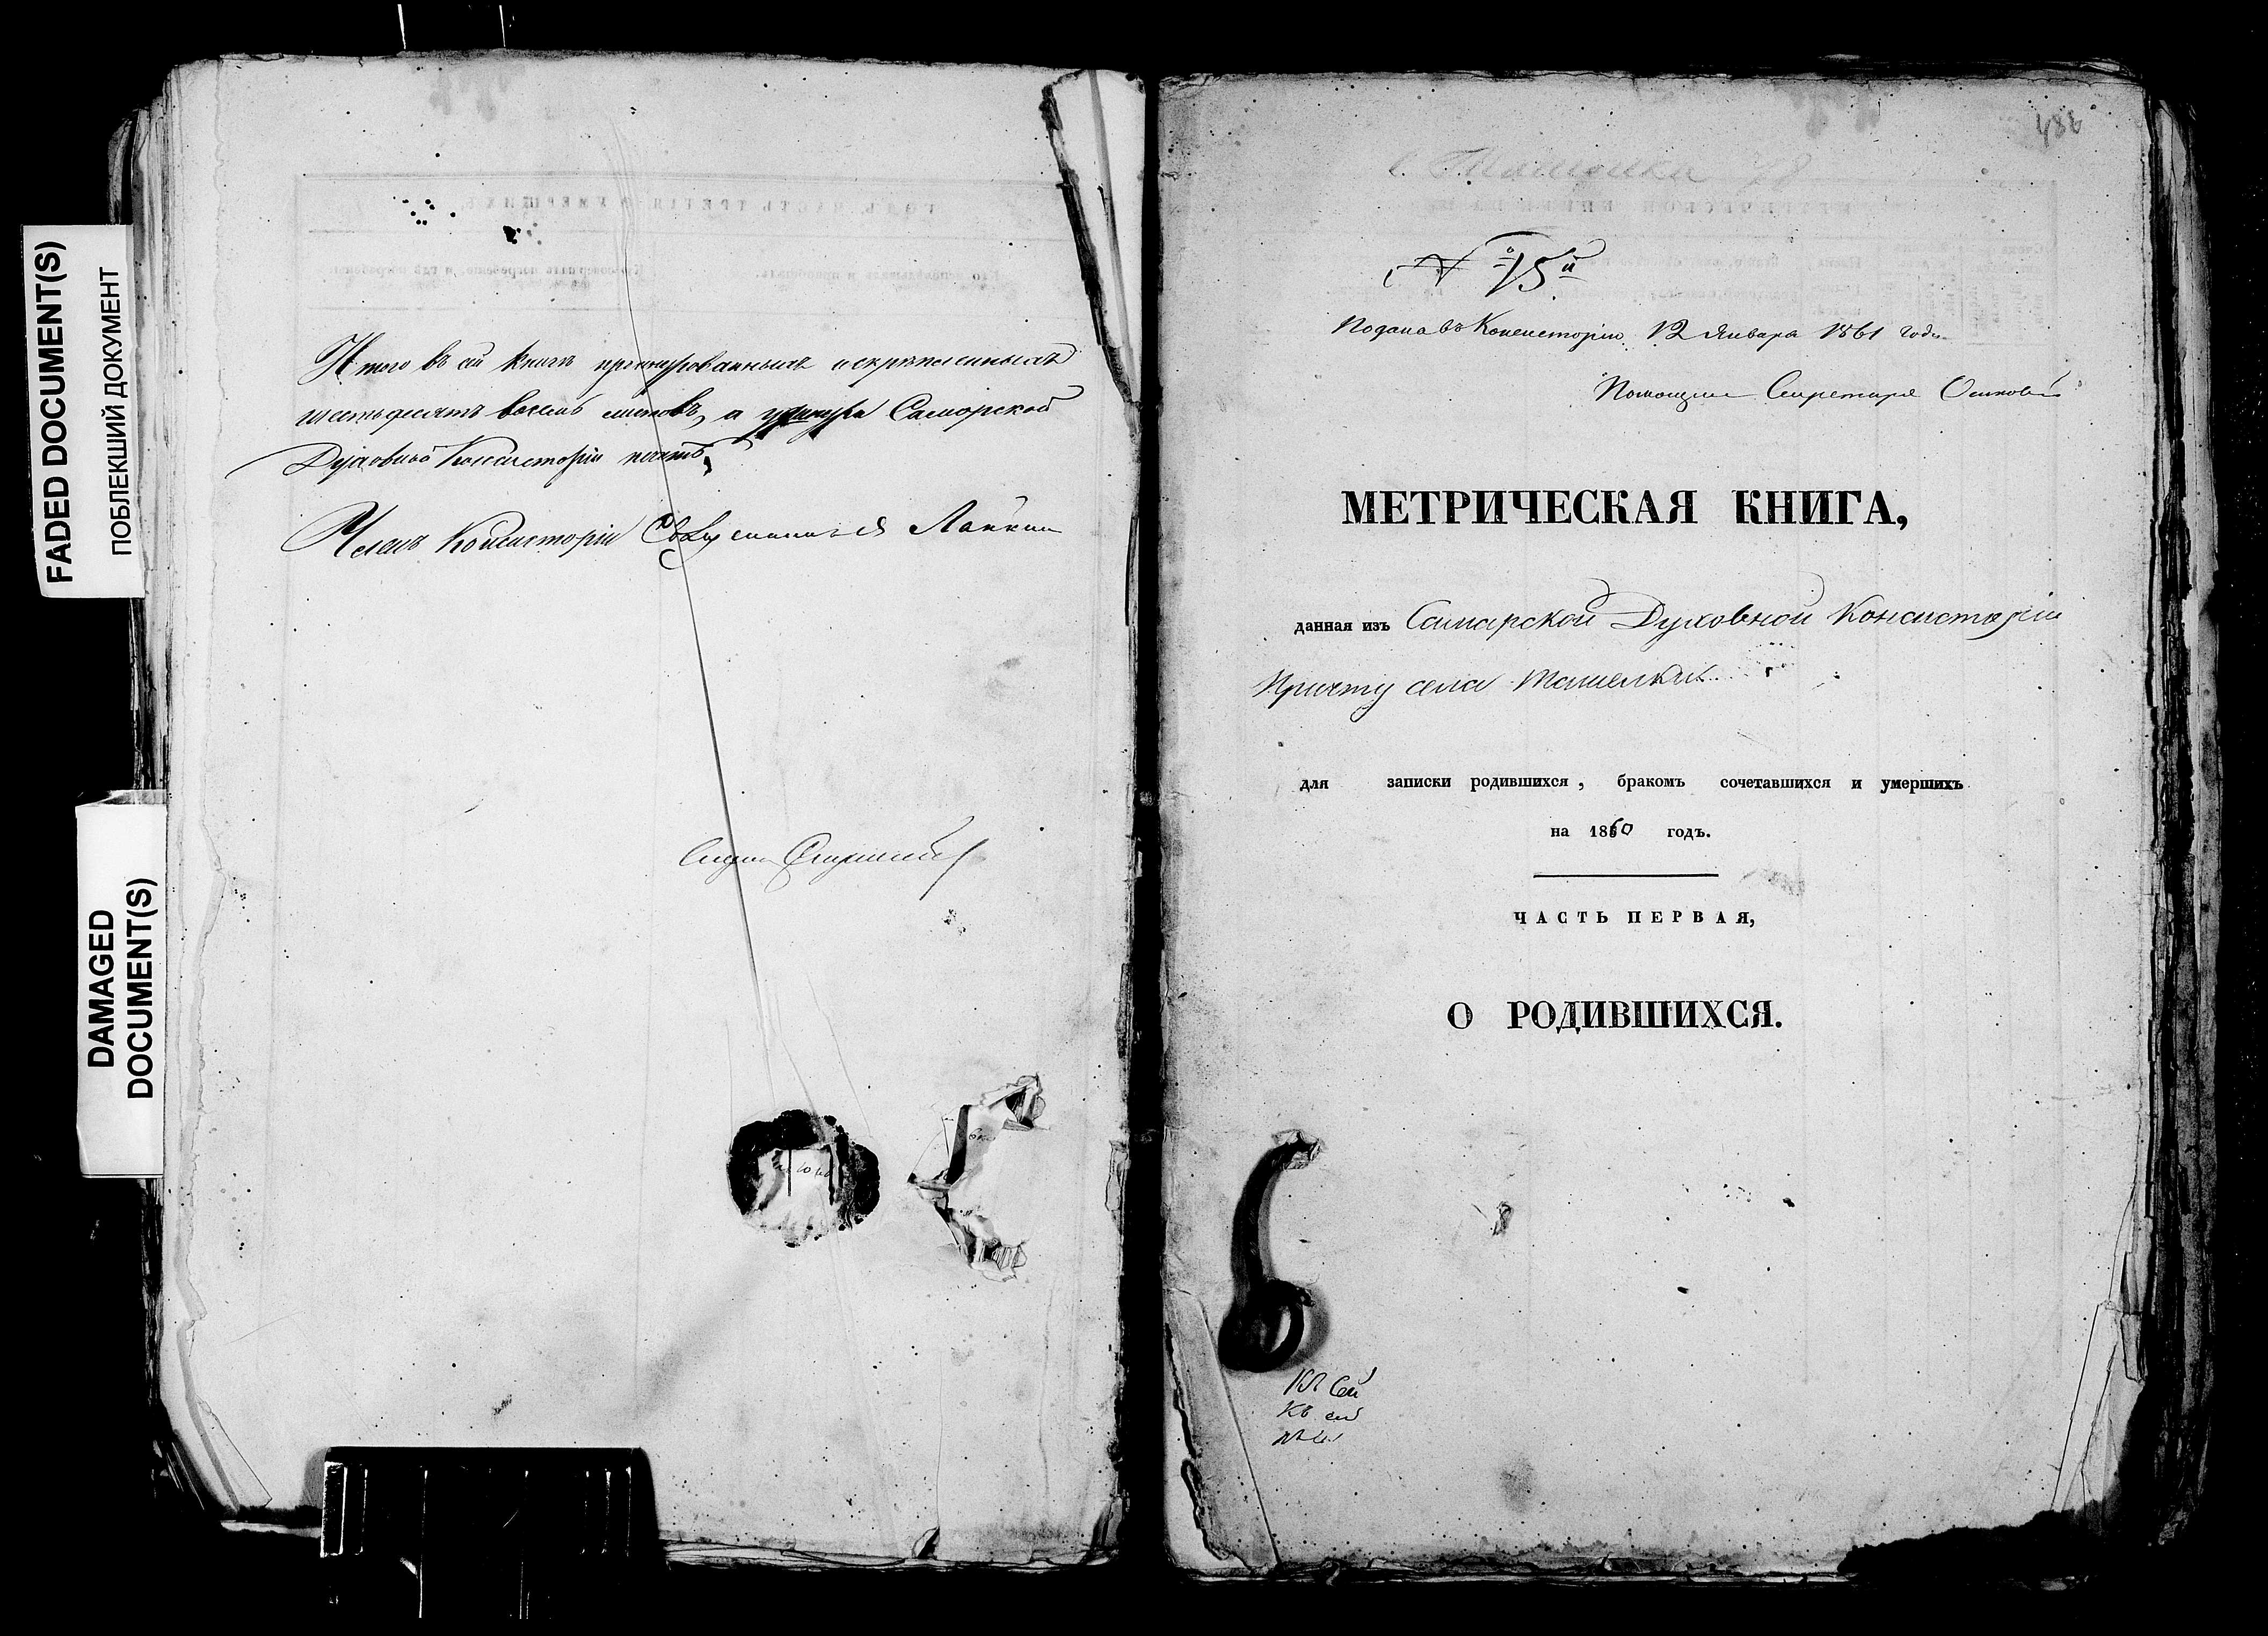 FADED DOCUMENT(S)
ПОБЛЕКШИЙ ДОКУМЕНТ
DAMAGED
DOCUMENT(S)
Итого въ сей книгѣ прошнурованныхъ и скрѣпленныхъ
шестьдесятъ восемь листовъ, а у шнура Самарской
Духовной Консисторіи печать
Членъ Консисторіи Священникъ
486
с. Ташолка 78
№ 75й
Подана въ Консисторію 12 Января 1861 года
Помощникъ Секретаря
МЕТРИЧЕСКАЯ КНИГА,
данная изъ Самарской Духовной Консисторіи
Причту села Ташелки
для записки родившихся, бракомъ сочетавшихся и умершихъ
на 1860 годъ.
ЧАСТЬ ПЕРВАЯ,
О РОДИВШИХСЯ.